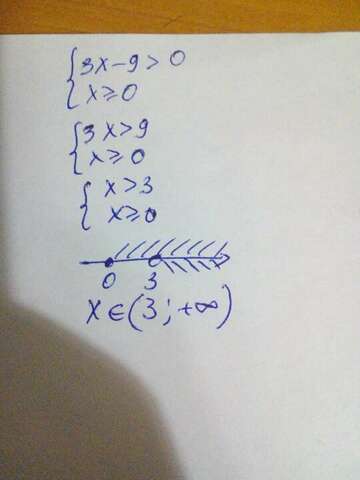 {3x-9>0
x≥0
{3x>9
x≥0
{x>3
x≥0
0 3
x∈(3;+∞)